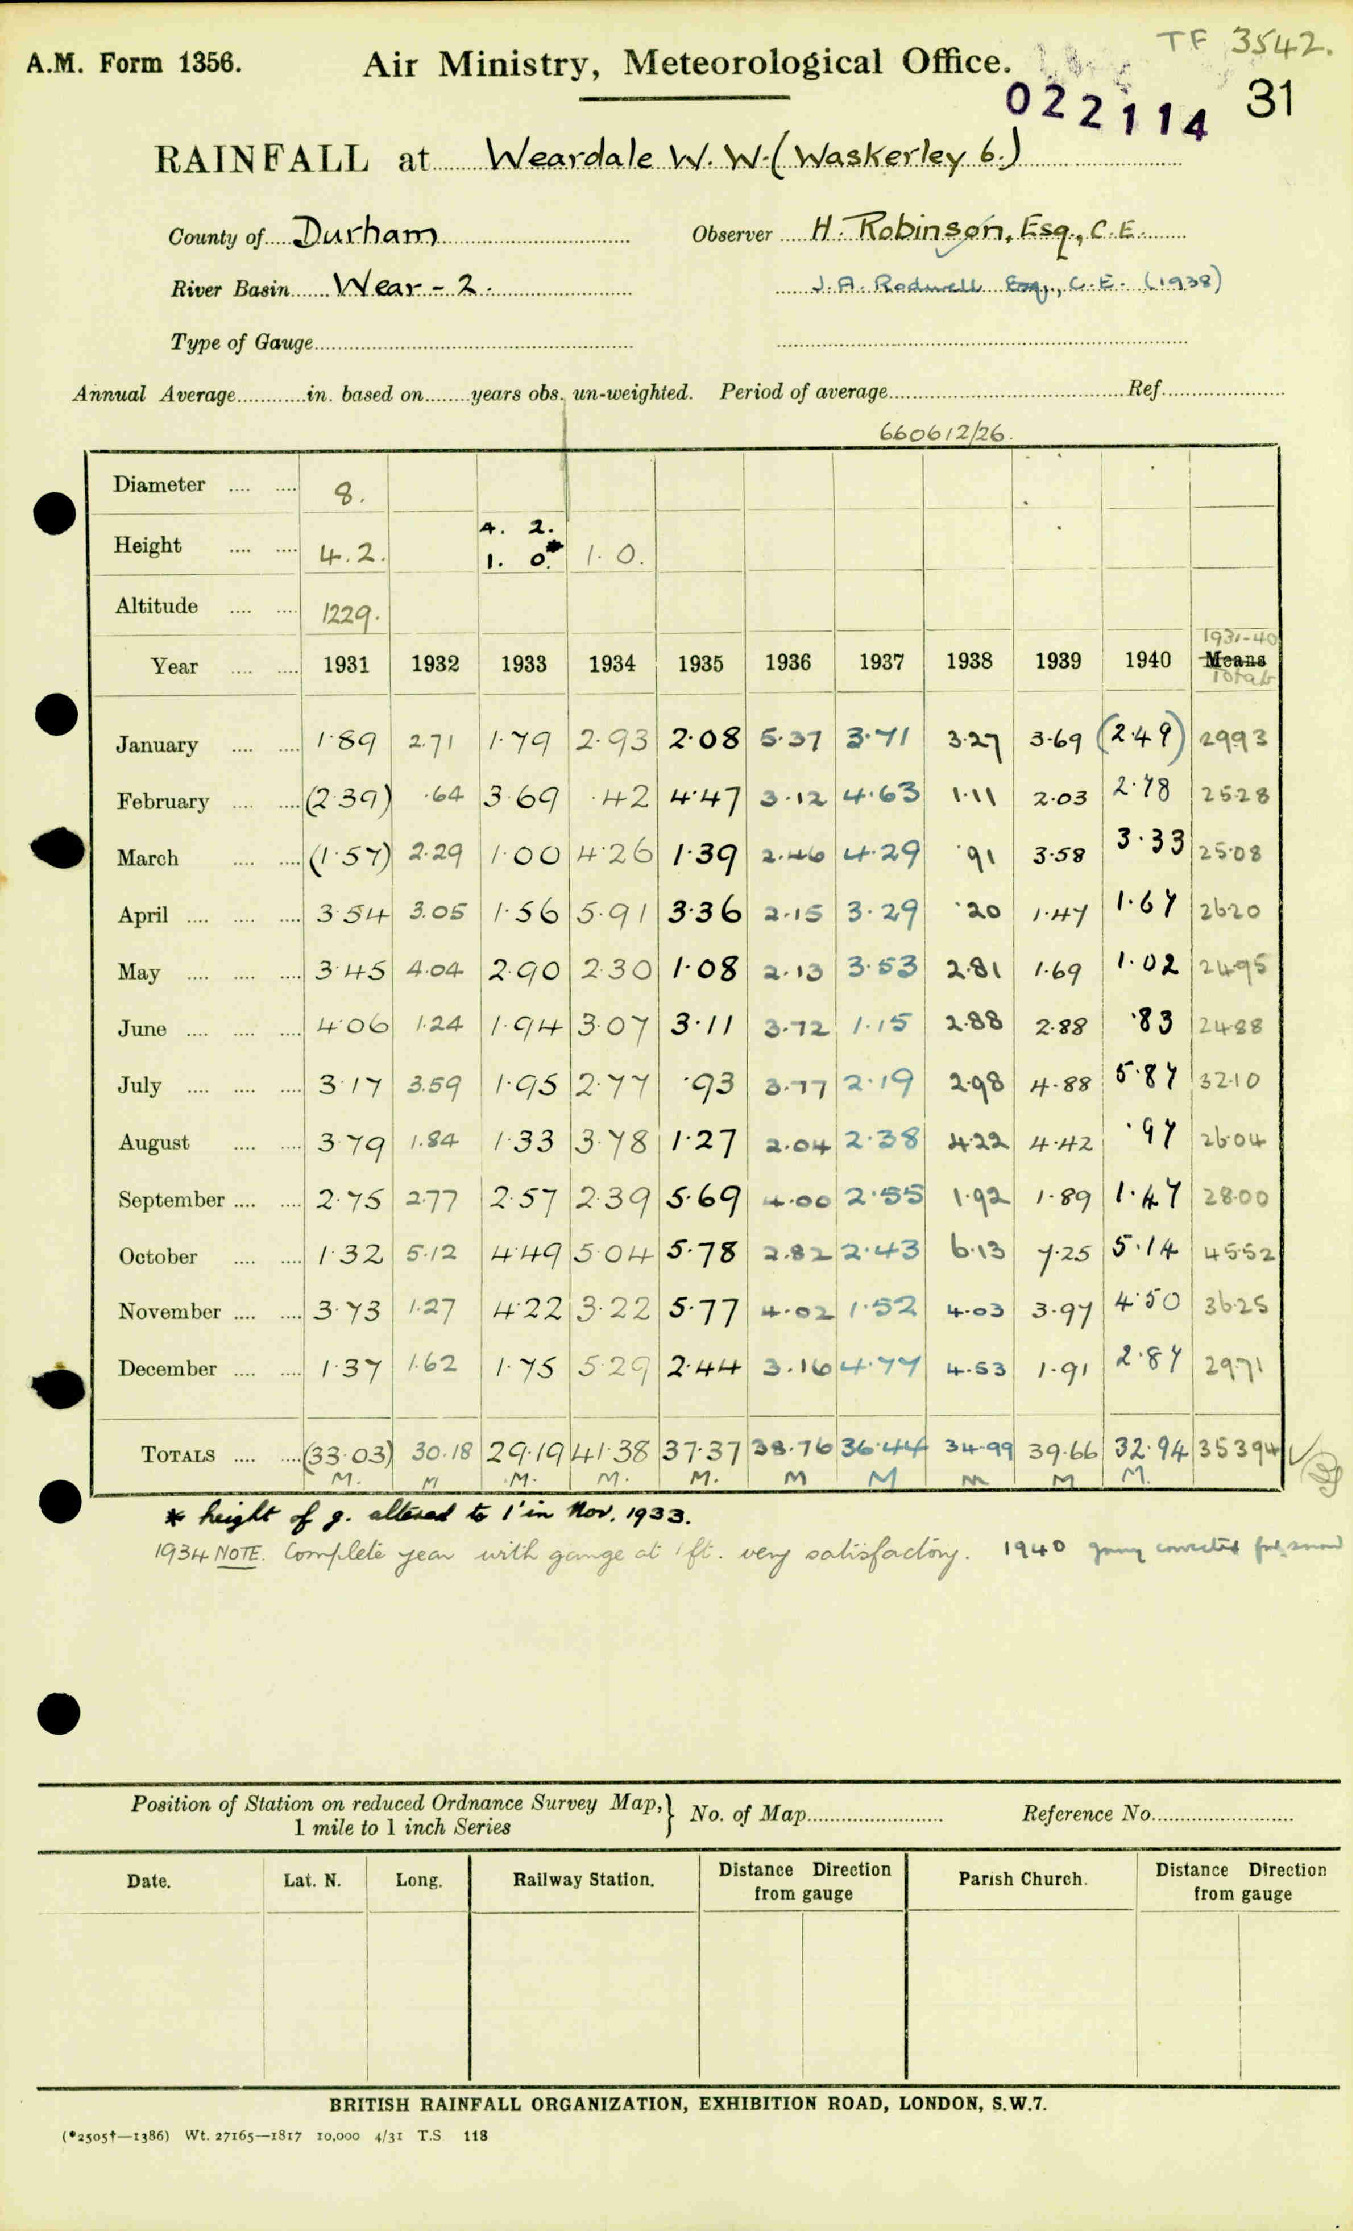 TF 3542.
A.M. Form 1356. Air Ministry, Meteorological Office.
022114 31
RAINFALL at Weardale W. W. (Waskerley 6.)
County of Durham Observer H. Robinson, Esq., C.E.
River Basin Wear - 2. J. A. Rodwell Esq., C.E. (1938)
Type of Gauge
Annual Average in. based on years obs. un-weighted. Period of average Ref.
660612/26.
Diameter 8.
Height 4.2. 4. 2. 1. 0.* 1. 0.
Altitude 1229.
Year 1931 1932 1933 1934 1935 1936 1937 1938 1939 1940 1931-40 Means Totals
January 1.89 2.71 1.79 2.93 2.08 5.37 3.71 3.27 3.69 (2.49) 29.93
February (2.39) .64 3.69 .42 4.47 3.12 4.63 1.11 2.03 2.78 25.28
March (1.57) 2.29 1.00 4.26 1.39 2.46 4.29 .91 3.58 3.33 25.08
April 3.54 3.05 1.56 5.91 3.36 2.15 3.29 .20 1.47 1.67 26.20
May 3.45 4.04 2.90 2.30 1.08 2.13 3.53 2.81 1.69 1.02 24.95
June 4.06 1.24 1.94 3.07 3.11 3.72 1.15 2.88 2.88 .83 24.88
July 3.17 3.59 1.95 2.77 .93 3.77 2.19 2.98 4.88 5.87 32.10
August 3.79 1.84 1.33 3.78 1.27 2.04 2.38 4.22 4.42 .97 26.04
September 2.75 2.77 2.57 2.39 5.69 4.00 2.55 1.92 1.89 1.47 28.00
October 1.32 5.12 4.49 5.04 5.78 2.82 2.43 6.13 7.25 5.14 45.52
November 3.73 1.27 4.22 3.22 5.77 4.02 1.52 4.03 3.97 4.50 36.25
December 1.37 1.62 1.75 5.29 2.44 3.16 4.77 4.53 1.91 2.87 29.71
TOTALS (33.03) 30.18 29.19 41.38 37.37 38.76 36.44 34.99 39.66 32.94 353.94
M. M M. M. M. M M M M M.
* height of g. altered to 1' in Nov. 1933.
1934 NOTE. Complete year with gauge at 1ft. very satisfactory. 1940 corrected for snow
Position of Station on reduced Ordnance Survey Map, 1 mile to 1 inch Series } No. of Map Reference No.
Date. Lat. N. Long. Railway Station. Distance Direction from gauge Parish Church. Distance Direction from gauge
BRITISH RAINFALL ORGANIZATION, EXHIBITION ROAD, LONDON, S.W.7.
(*2505†—1386) Wt. 27165—1817 10,000 4/31 T.S. 118